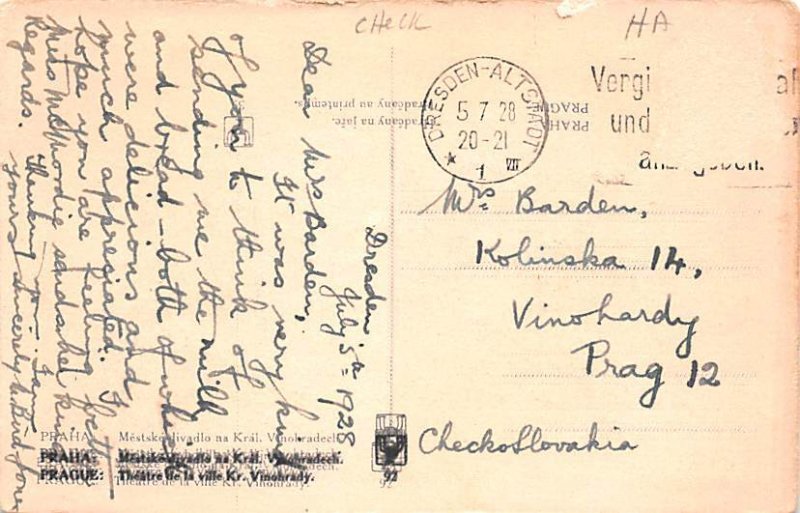 CHECK
HA
DRESDEN-ALTSTADT
5 7 28
20-21
1 VII
Vergi
und
Hradčany au printemps.
PRAGUE
Hradčany na jaře.
PRAHA
Dresden
July 5th 1928
Dear Mrs Barden,
It was very kind
of you to think of
sending me the milk
and bread - both of which
were delicious and
much appreciated. I
hope you are feeling better
Miss sends her kind
Regards. Thanking you I am
yours sincerely
Mrs Barden,
Kolinska 14,
Vinohardy
Prag 12
Checkoslovakia
PRAHA: Městské divadlo na Král. Vinohradech.
PRAHA: Městské divadlo na Král. Vinohradech.
PRAGUE: Théâtre de la ville Kr. Vinohrady.
PRAGUE: Théâtre de la ville Kr. Vinohrady.
92